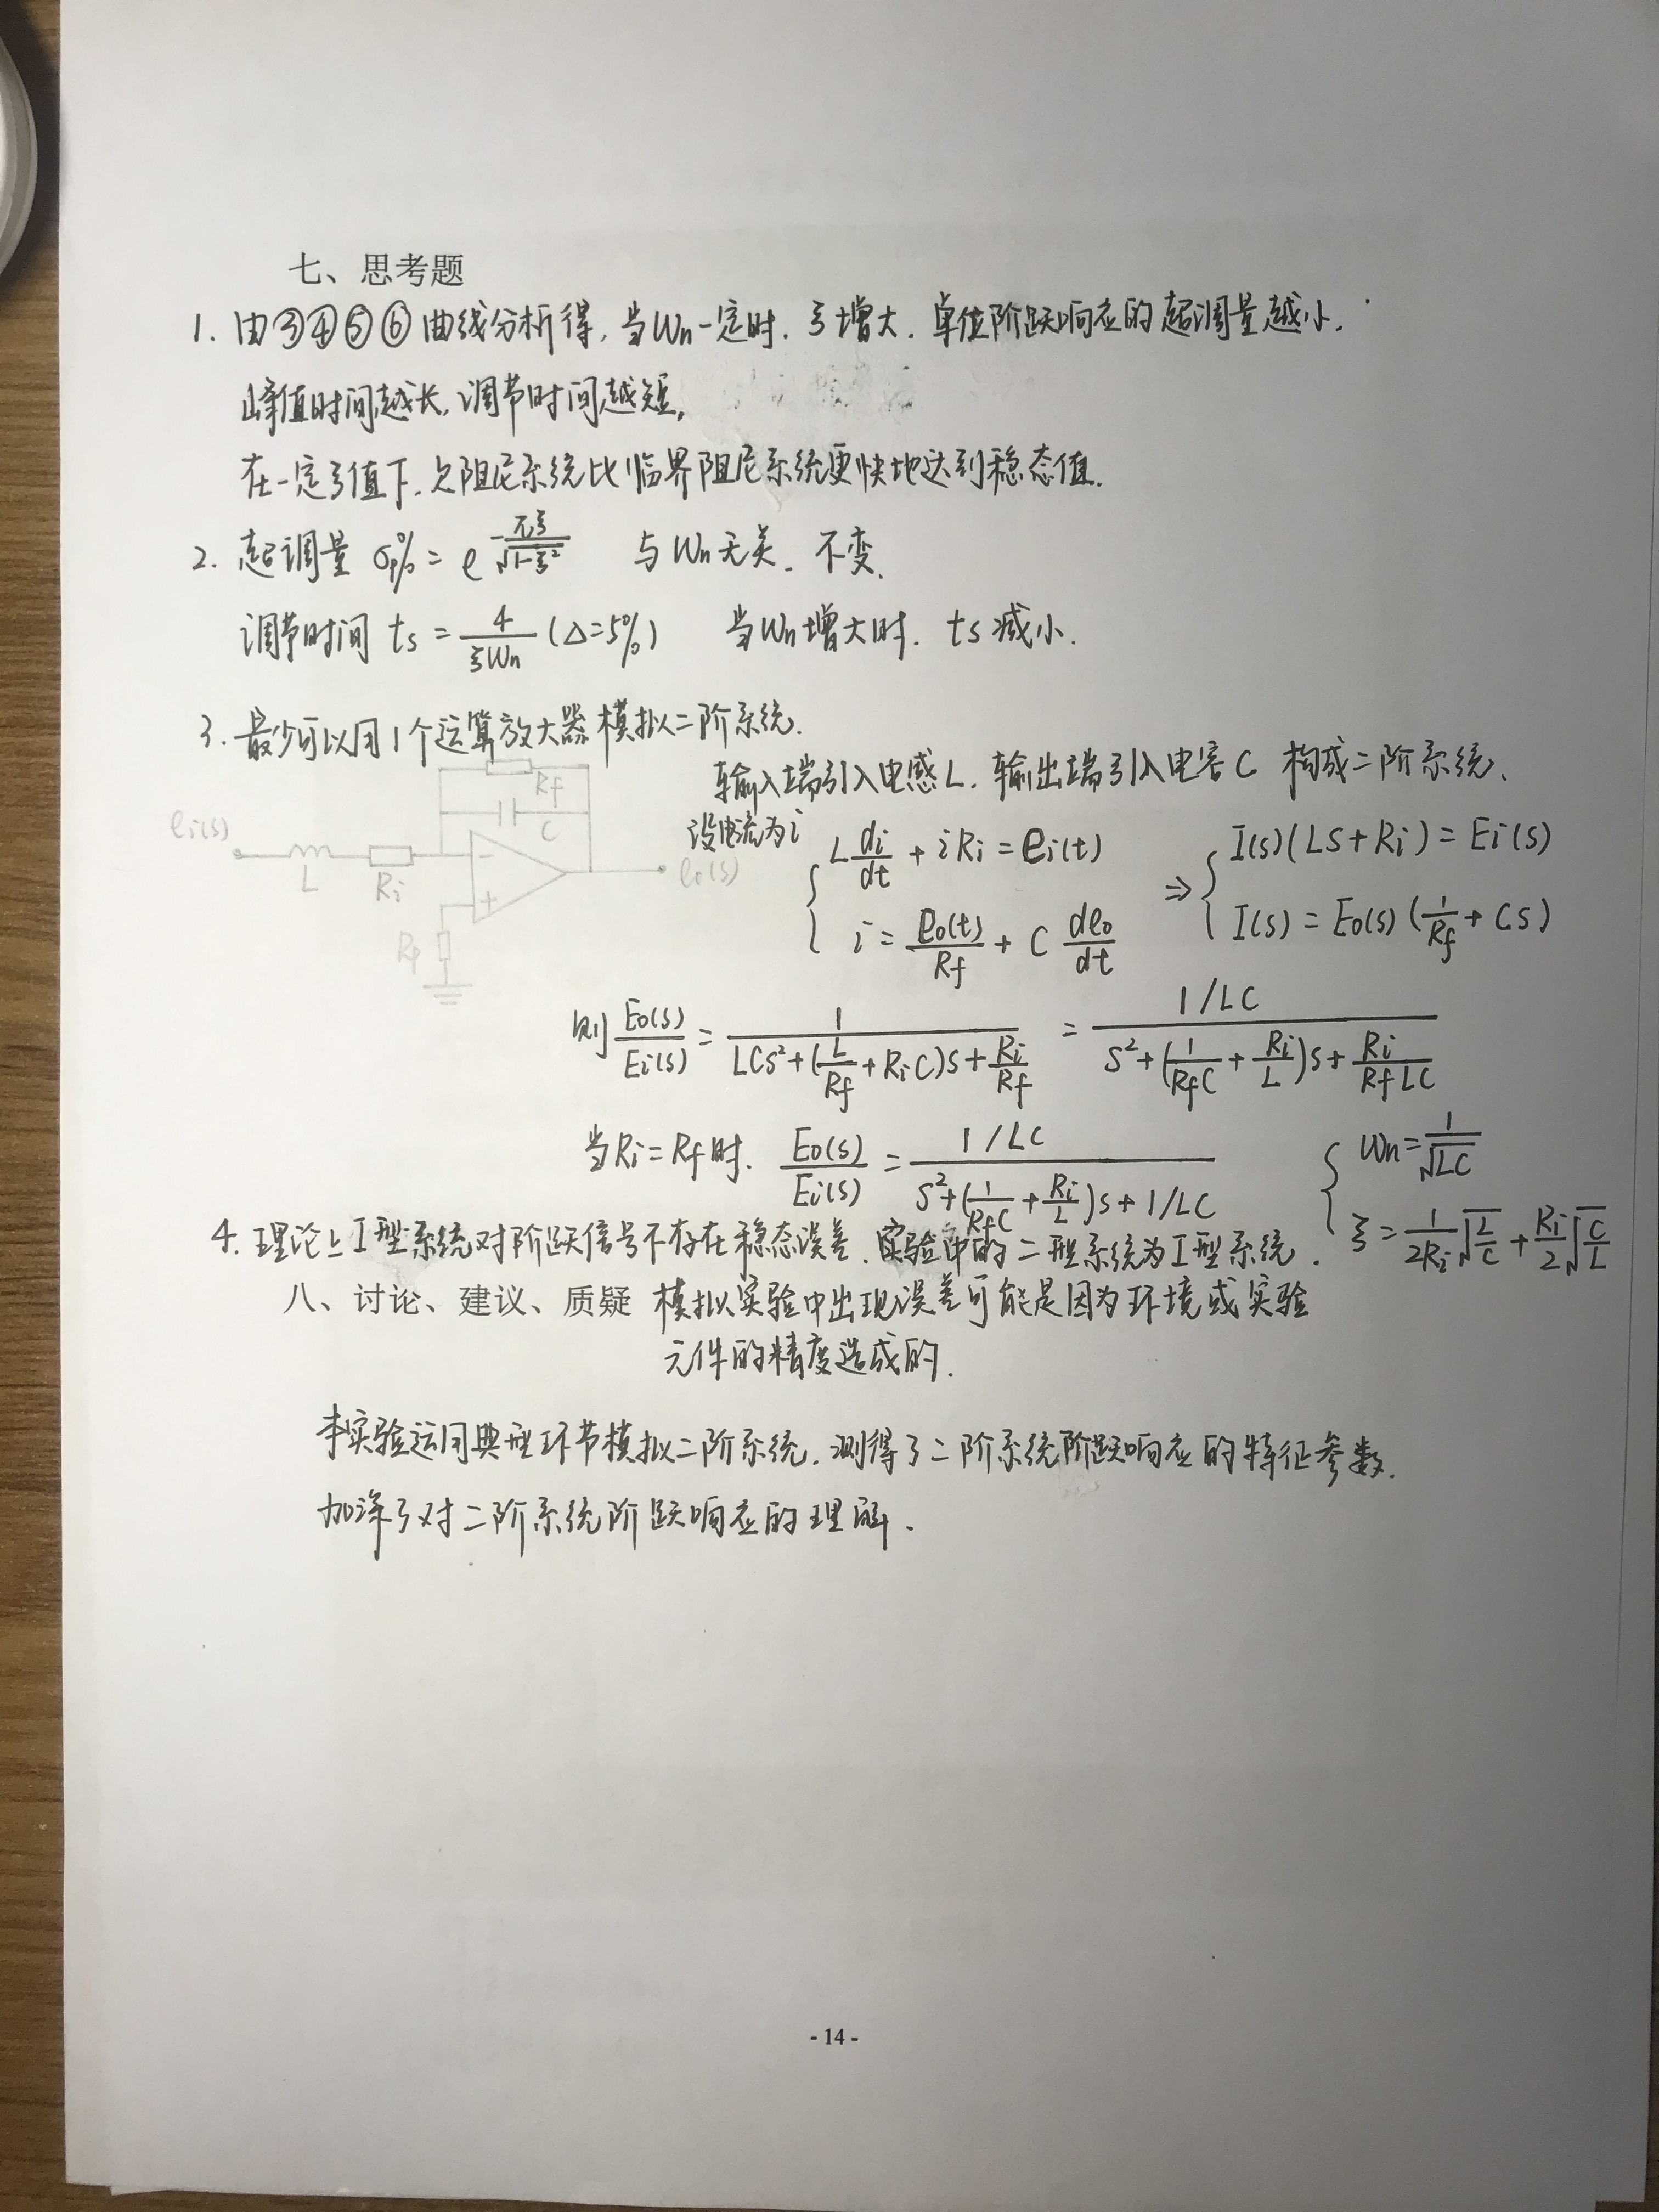 七、思考题
1. 由③④⑤⑥曲线分析得,当Wn一定时.ξ增大.单位阶跃响应的超调量越小.
峰值时间越长,调节时间越短,
在一定ξ值下.欠阻尼系统比临界阻尼系统更快地达到稳态值.
2. 超调量 σp% = e^(-πξ/√(1-ξ²)) 与Wn无关. 不变.
调节时间 ts = 4/(ξWn) (Δ=5%) 当Wn增大时. ts减小.
3. 最少可以用1个运算放大器模拟二阶系统.
输入端引入电感L. 输出端引入电容C 构成二阶系统.
ei(s) L Ri Rf C - + Rp eo(s)
设电流为i
{ L di/dt + iRi = ei(t) ⇒ { I(s)(LS+Ri) = Ei(s)
i = eo(t)/Rf + C deo/dt I(s) = Eo(s)(1/Rf + CS)
则 Eo(s)/Ei(s) = 1/(LCS²+(L/Rf+RiC)S+Ri/Rf) = (1/LC)/(S²+(1/RfC+Ri/L)S+Ri/RfLC)
当Ri=Rf时. Eo(s)/Ei(s) = (1/LC)/(S²+(1/RfC+Ri/L)S+1/LC) { Wn=1/√LC
ξ=1/2Ri √(L/C)+Ri/2 √(C/L)
4. 理论上I型系统对阶跃信号不存在稳态误差.实验中的二型系统为I型系统.
八、讨论、建议、质疑 模拟实验中出现误差可能是因为环境或实验
元件的精度造成的.
本实验运用典型环节模拟二阶系统.测得了二阶系统阶跃响应的特征参数.
加深了对二阶系统阶跃响应的理解.
- 14 -